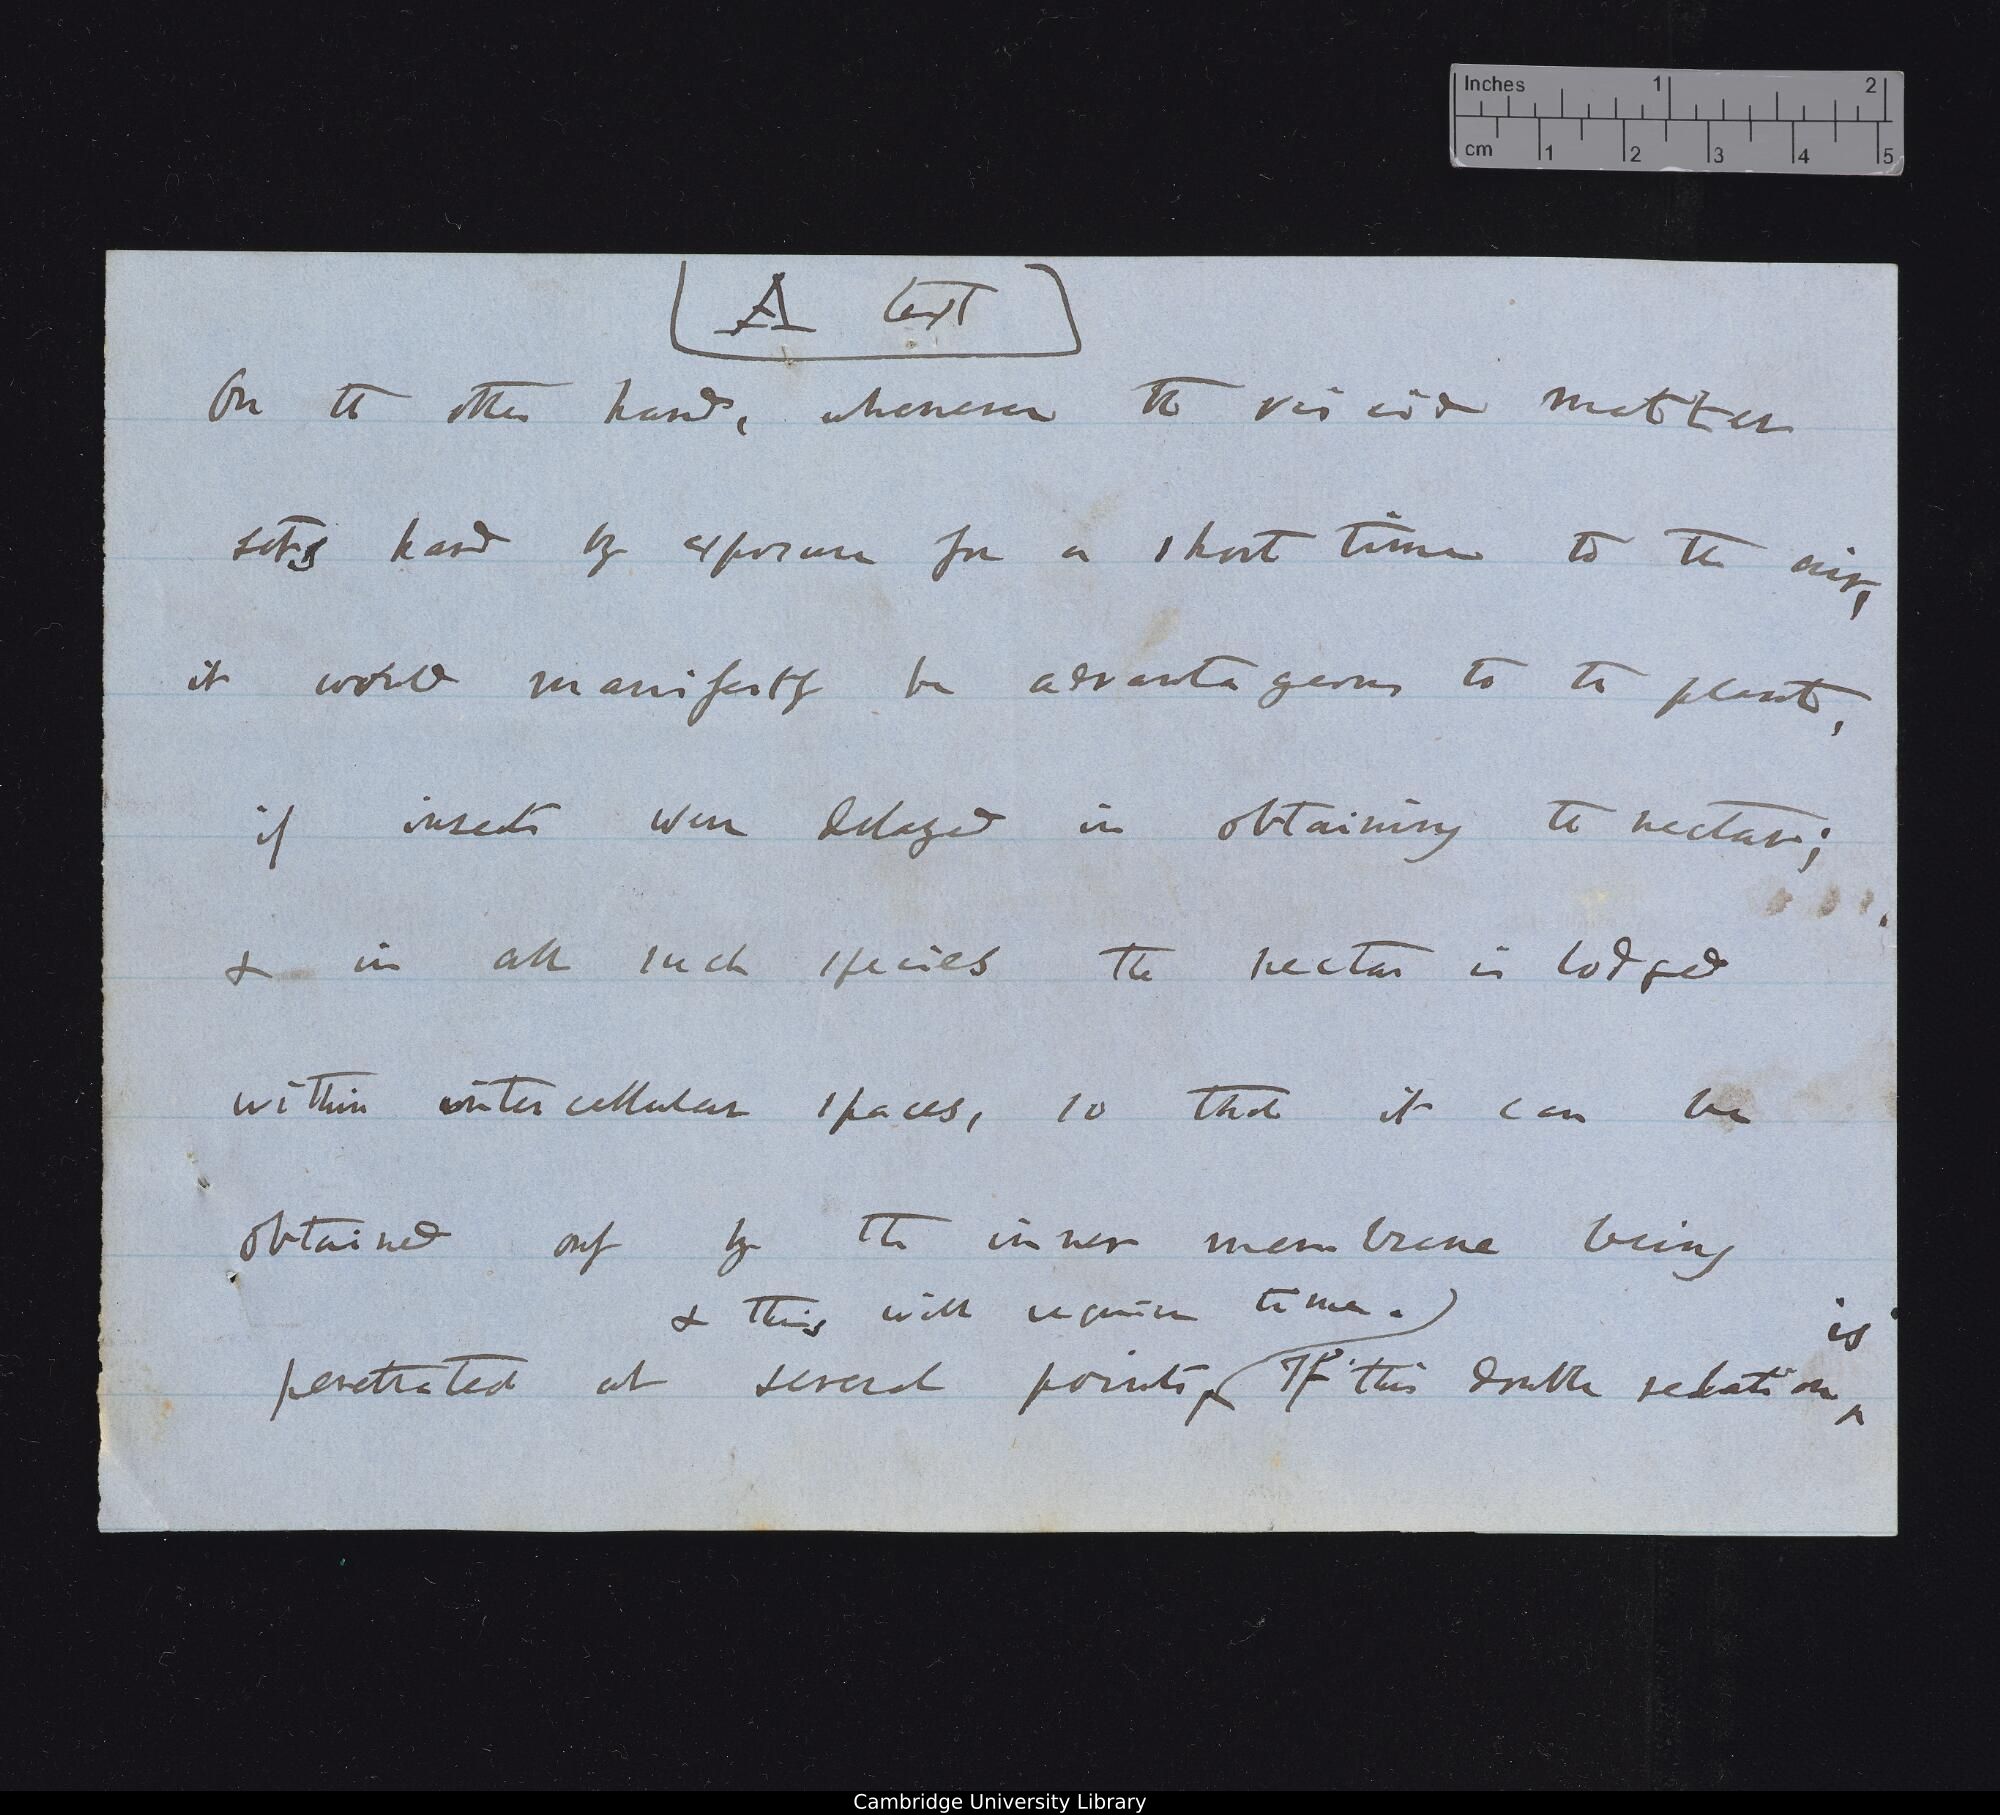 Inches 1 2
cm 1 2 3 4 5
A text
On the other hand, whenever the viscid matter
sets hard by exposure for a short time to the air,
it would manifestly be advantageous to the plant,
if insects were delayed in obtaining the nectar;
& in all such species the nectar is lodged
within intercellular spaces, so that it can be
obtained only by the inner membrane being
& this will require time.) is
penetrated at several points, If this double relation ^
Cambridge University Library